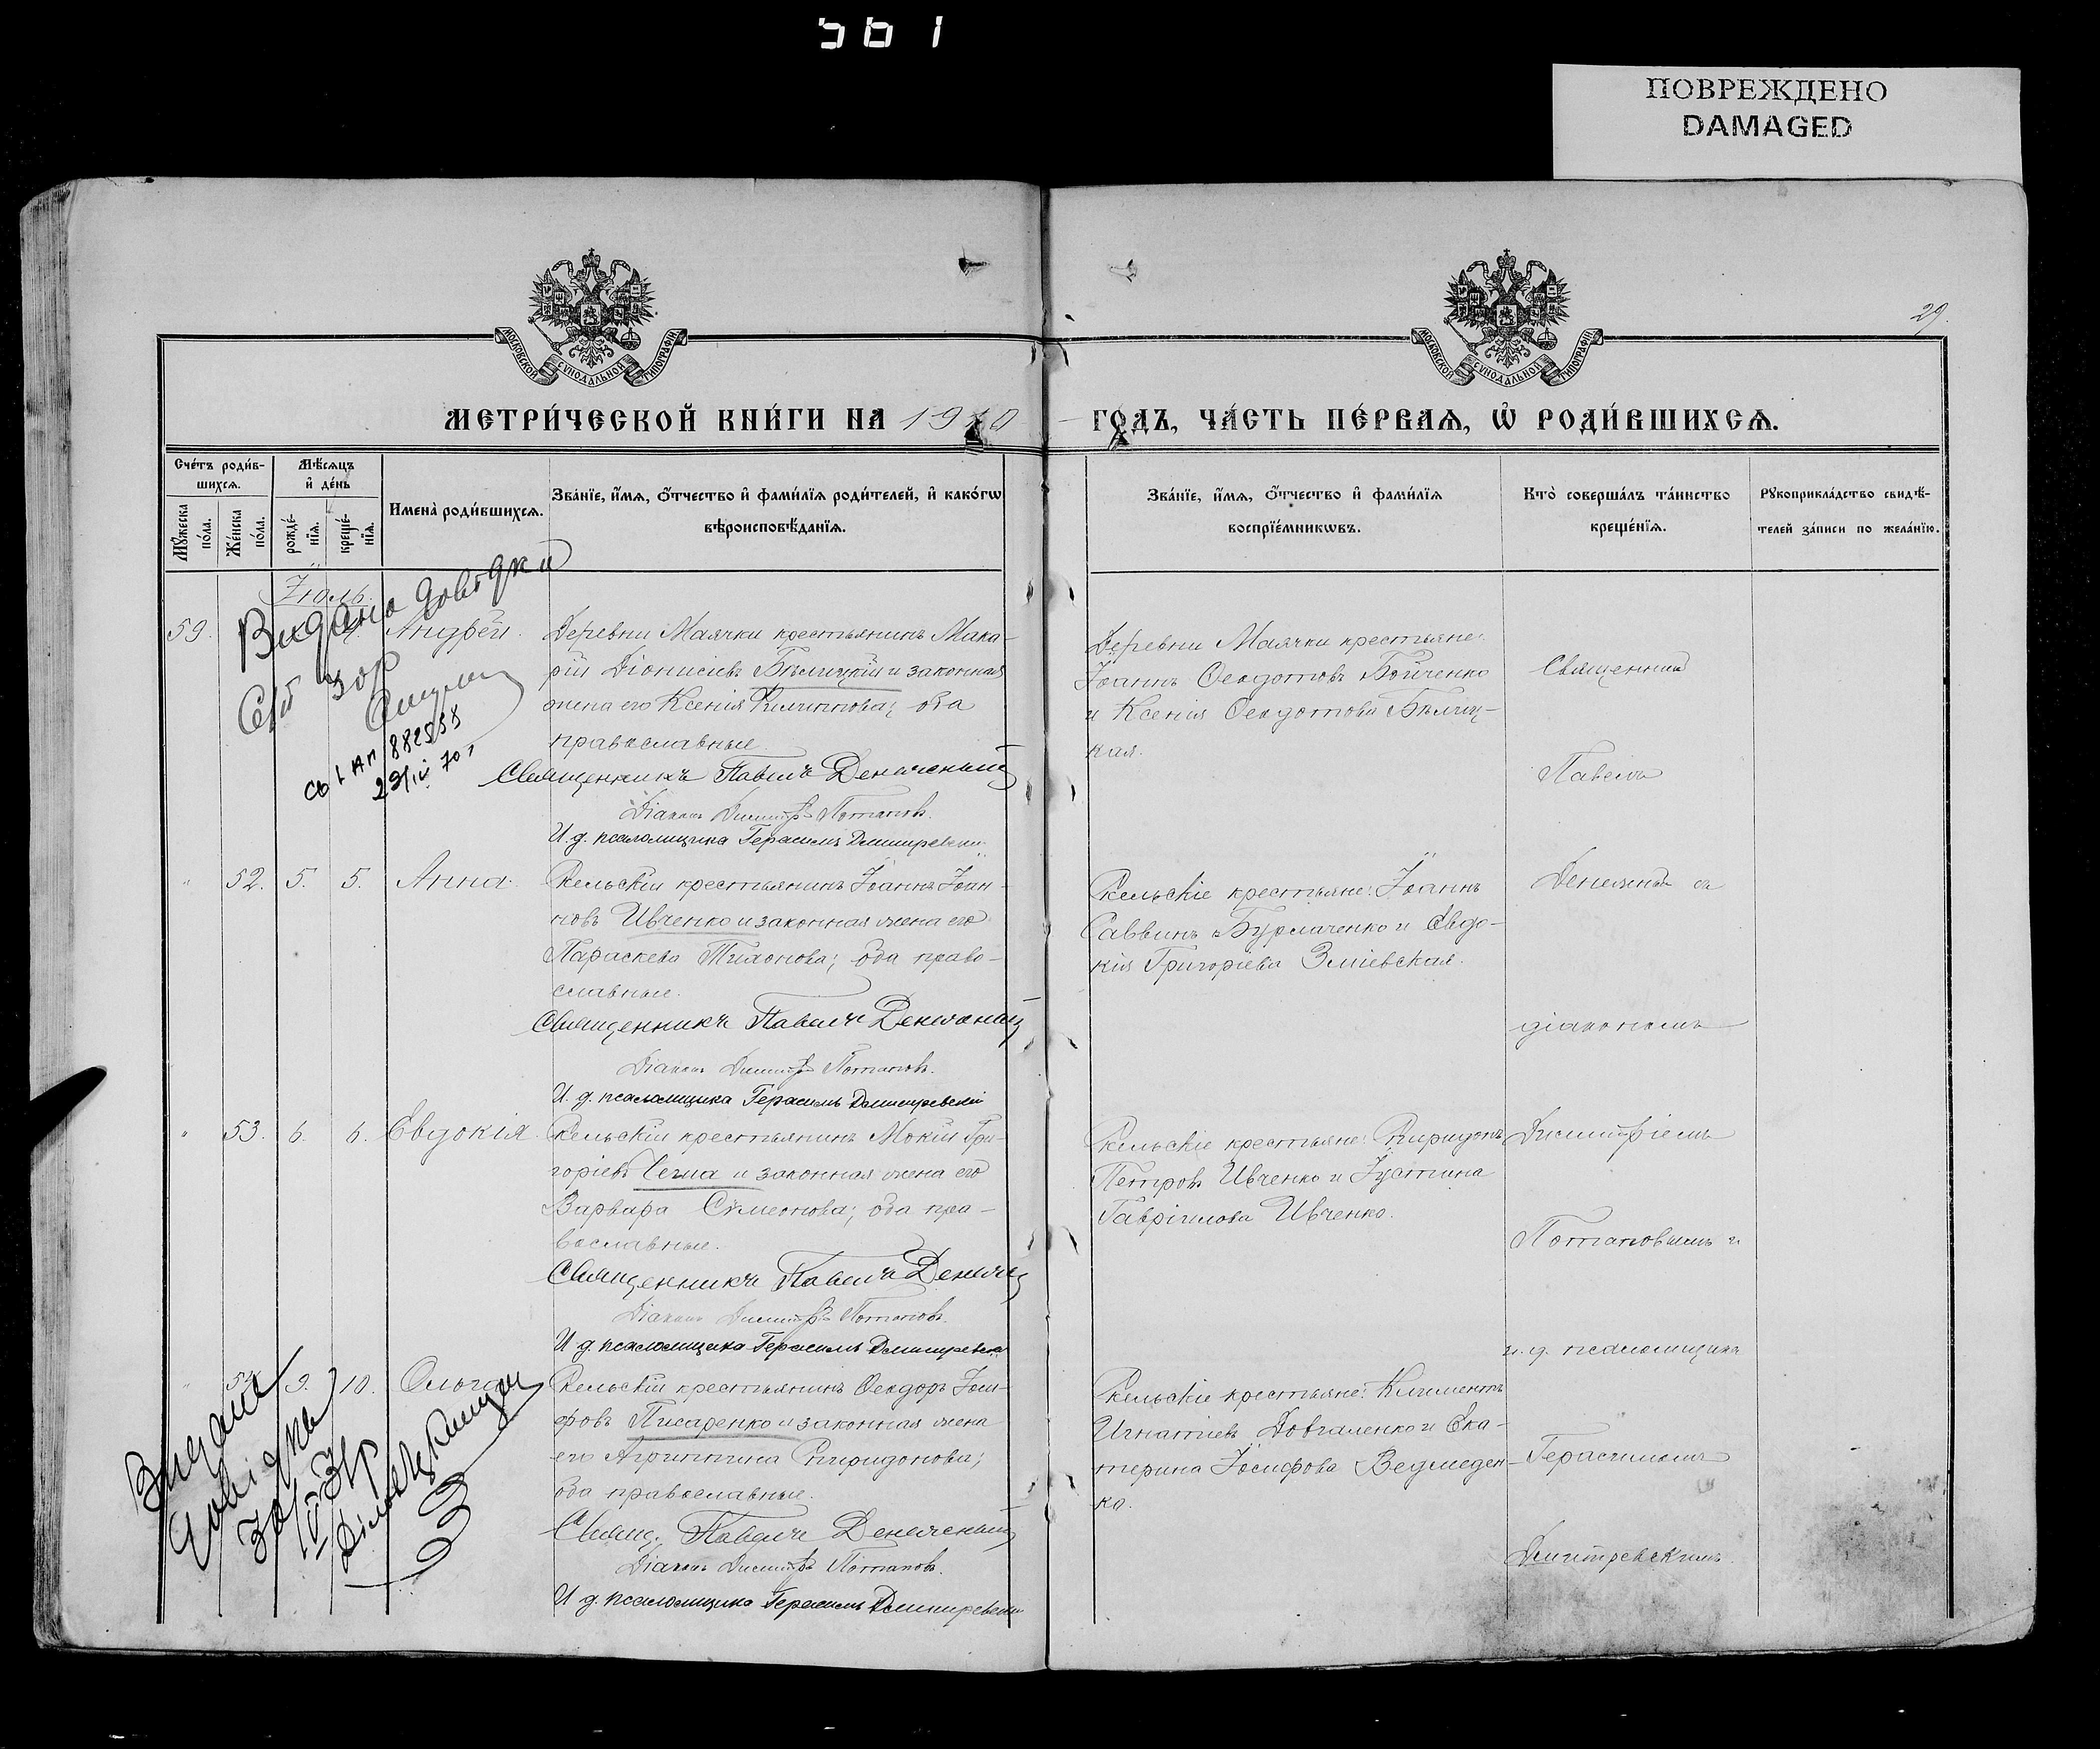 561
ПОВРЕЖДЕНО
DAMAGED
МОСКОВСКОЙ СѴНОДАЛЬНОЙ ТИПОГРАФІИ
МОСКОВСКОЙ СѴНОДАЛЬНОЙ ТИПОГРАФІИ
29.
МЕТРИ́ЧЕСКОЙ КНИ́ГИ НА 1910
ГОДЪ, ЧА́СТЬ ПЕ́РВАѦ, Ѽ РОДИ́ВШИХСѦ.
Сче́тъ роди́в-
шихсѧ.
Мꙋ́жеска по́ла.
Же́нска по́ла.
Мѣ́сѧцъ
и҆ де́нь
рожде́-
нїѧ.
креще́-
нїѧ.
Имена̀ роди́вшихсѧ.
Зва́нїе, и҆́мѧ, ѻ҆́тчество и҆ фами́лїѧ роди́телей, и҆ како́гѡ
вѣроисповѣ́данїѧ.
Зва́нїе, и҆́мѧ, ѻ҆́тчество и҆ фами́лїѧ
воспрїе́мникѡвъ.
Кто̀ соверша́лъ та́инство
креще́нїѧ.
Рꙋкоприкла́дство свидѣ́-
телей за́писи по жела́нїю.
Іюль.
Видано довідки
59. 4. Андрей.
Деревни Маячки крестьянинъ Мака-
рій Діонисіевъ Бѣлицкій и законная
жена его Ксенія Филиппова; оба
православные.
Священникъ Павелъ
Діаконъ Димитрій Потаповъ.
И. д. псаломщика Герасимъ Дмитревскій
882558
Деревни Маячки крестьяне:
Іоаннъ Ѳеодотовъ Бойченко
и Ксенія Ѳеодотова Бѣлиц-
кая.
Священникъ
Павелъ
52. 5. 5. Анна.
Рельскій крестьянинъ Іоаннъ Іоан-
новъ Ивченко и законная жена его
Параскева Тихонова; оба право-
славные.
Священникъ Павелъ
Діаконъ Димитрій Потаповъ.
И. д. псаломщика Герасимъ Дмитревскій
Рельскіе крестьяне: Іоаннъ
Саввинъ Бурлаченко и Евдо-
кія Григоріева Зміевская.
съ
діакономъ
53. 6. 6. Евдокія.
Рельскій крестьянинъ Мокій Гри-
горіевъ и законная жена его
Варвара Сѵмеонова; оба пра-
вославные.
Священникъ Павелъ
Діаконъ Димитрій Потаповъ.
И. д. псаломщика Герасимъ Дмитревскій
Рельскіе крестьяне: Спиридонъ
Петровъ Ивченко и Іустина
Гавріилова Ивченко.
Димитріемъ
Потаповымъ и
и. д. псаломщика
54. 9. 10. Ольга
Рельскій крестьянинъ Ѳеодоръ Іоси-
фовъ Писаренко и законная жена
его Агриппина Спиридонова;
оба православные.
Свящ. Павелъ
Діаконъ Димитрій Потаповъ.
И. д. псаломщика Герасимъ Дмитревскій
Рельскіе крестьяне: Климентъ
Игнатіевъ Довгаленко и Ека-
терина Іосифова Ведмеден-
ко.
Герасимомъ
Дмитревскимъ.
Видана
довідка